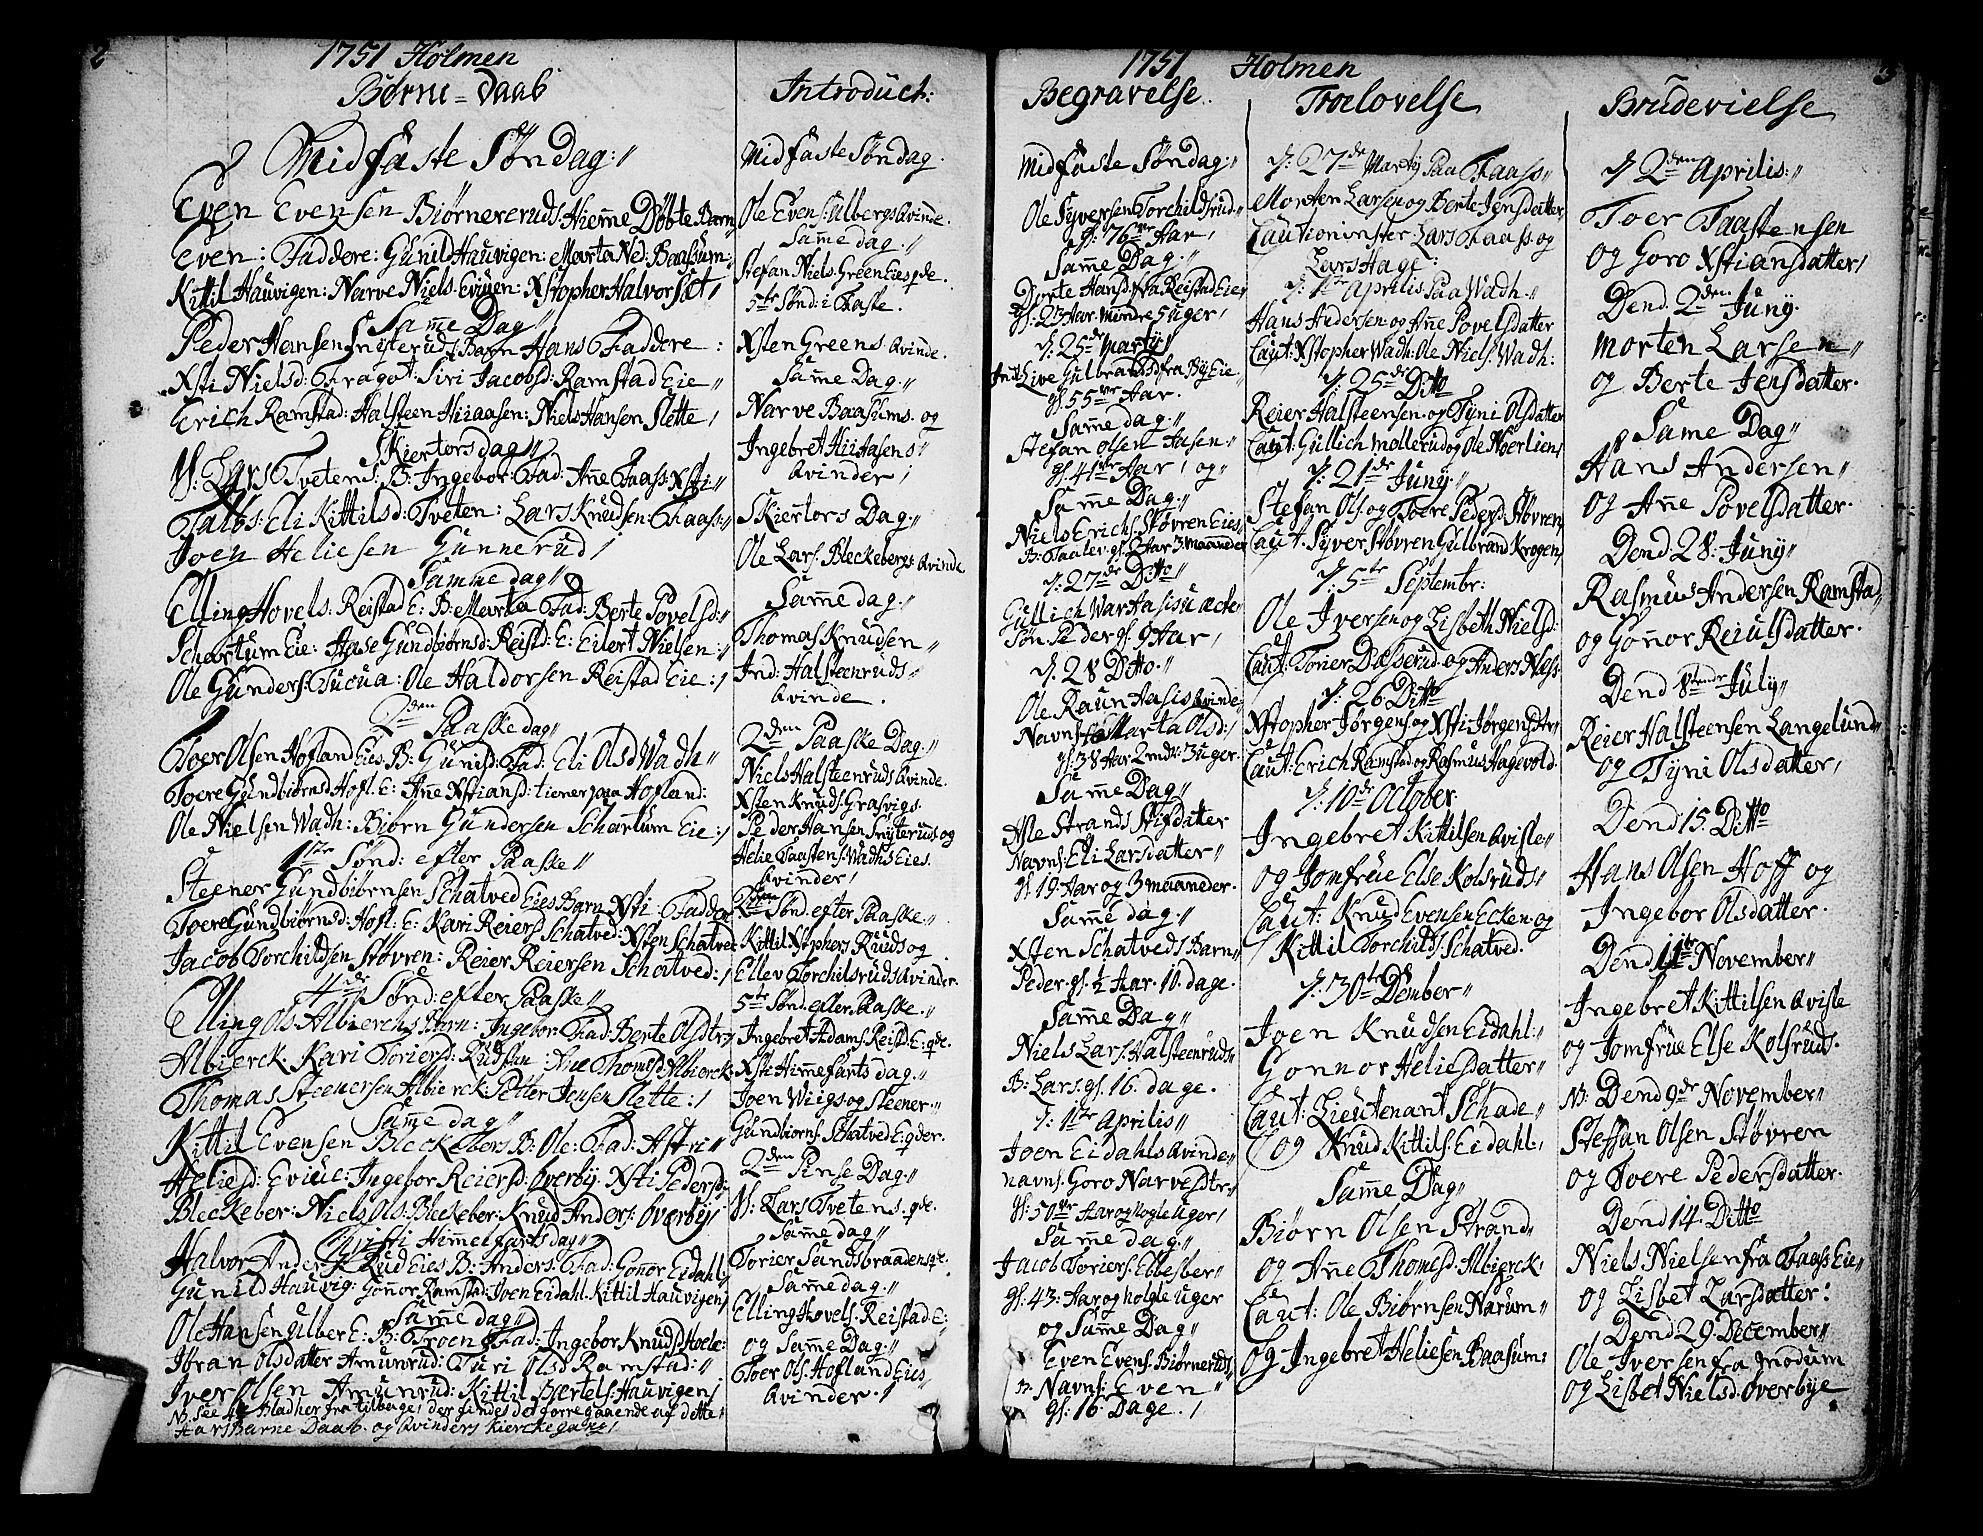 2
1751 Holmen
Børne=Daab
Midfaste Søndag://
Even Evensen Biørneruds: Hieme Døbte Barn
Even: Faddere: Gunild Hauvigen: Marta Ned: Baasum:
Kittil Hauvigen: Narve Niels: Eviuen: Xstopher Halvors:
Same Dag//
Peder Hansen Snyteruds Barn Hans Faddere:
Xsti Nielsd: Fragot: Siri Jacobsd: Ramstad Eie//
Erich Ramstad: Halsteen Hiiaasen: Niels Hansen Slette/
Skiertorsdag//
H: Lars Tvetens: B: Ingebor: Fad: Ane Faass: Xsti//
Eli Kittilsd: Tveten: Lars Knudsen: Faas://
Joen Heliesen Gunnerud/
Samme dag//
Elling Hovels: Reistad E: B: Marta Fad: Berte Povelsd://
Schartum Eie: Aase Gundbiørnsd: Reistd: E: Eilert Nielsen://
Ole Gunders: Tucua: Ole Haldorsen Reistad Eie:/
2den Paaske dag//
Toer Olsen Hofland Eies B: Gunild: Fad: Eli Olsd Wadh//
Toere Gundbiørnsd Hofl. E: Ane Xstiansd: tiener paa Hofland:
Ole Nielsen Wadh: Biørn Gundersen Schartum Eie:/
1ste Sønd: efter Paaske//
Steener Gundbiørnsen Schatved Eies Barn Xsti: Fadder
Toere Gundbiørnsd: Hofl: E: Kari Reiers: Schatved: Xsten Schatved:
Jacob Torchildsen Støvren: Reier Reiersen Schatved:/
4de Sønd: efter Paaske//
Elling Ols: Albierchs Barn: Ingebor: Fad: Berte Olsdtr:
Albierck: Kari Toriersd: Rudsan: Ane Thomesd Albierck:
Thomas Steenersen Albierck: Petter Jensen Slette:/
Same dag//
Kittil Evensen Bleckebers B: Ole: Fad: Astri//
Heliesd: Eviue: Ingebor Reiersd: Overby: Xsti Pedersd:
Bleckeber: Niels Ols: Bleckeber: Knud Anders: Overby/
Xsti Himmelfartsdag//
Halvor Anders: Rud Eies B: Anders: Fad: Gonor Eidahl:
Gunild Hauvig: Gonor Ramstad: Joen Eidahl: Kittil Hauvigen/
Same dag//
Ole Hansen Ulber E: B: Troen Fad: Ingebor Knudsd Hoele:
Jøran Olsdatter Amunrud: Turi Olsd Ramstad://
Iver Olsen Amunrud: Kittil Bertels: Hauvigen/
NB: see 4re Blad her fra tilbage, der findes det forregaaende af dette
Aars Barne Daab og Qvinders Kierckegang/
Introduct:
Midfaste Søndag.
Ole Evens: Ulbergs Qvinde.
Same dag.//
Stefan Niels: Green Eies qde.
5te Sønd: i Faste.
Xsten Greens Qvinde.
Same Dag.//
Narve Baasums og
Ingebret Hiiaasens
Qvinder/
Skiertors Dag.//
Ole Lars: Bleckebergs Qvinde
Same dag.//
Thomas Knudsen//
Ind: Halsteenruds
Qvinde.
2den Paaske Dag.//
Niels Halsteenruds Qvinde.
Xsten Knuds: Grasvigs
Peder Hansen Snyteruds og
Helie Taastens: Wadhs Eies
Qvinder/
2den Sønd. efter Paaske.//
Kittil Xstophers Ruds og
Ellev Torchilsruds Qvinder
5te Sønd. efter Paaske.//
Ingebret Adams: Reistd: E: qde.
Xsti Himefarts dag.//
Joen Wiigs og Steener
Gundbiorns: Schatved E: qder.
2den Pinse Dag.//
H: Lars Tvetens. qde.
Same dag//
Torier Sandsbraadens qde.
Same dag.//
Elling Hovels: Reistad E:
og Same Dag//
Toer Ols: Hofland Eies
Qvinder./
1751 Holmen
3
Begravelse.
Midfaste Søndag://
Ole Syversen Torchildsrud
gl: 76 Aar/
Same Dag.//
Dorte Hansd: fra Reistad Eie
gl: 23 Aar mindre 5 uger/
d: 25de Marty/
Ind: Live Gulbrandsd fra Bye Eie
gl: 55 Aar.
Same dag.//
Stefan Olsen Aasen
gl: 41 Aar/ og
Same Dag.//
Niels Erichs: Støvren Eies
B: Taale: gl: 2 Aar 3 maaneder
d: 27de Ditto//
Gullich
Søn Peder gl: 9 Aar/
d. 28 Ditto.//
Ole Raun Aasis Qvinde
Navns: Marta Olsd:/
gl: 38 Aar 3 uger.
Same Dag//
Asle Strands Stifdatter
Navns: Eli Larsdatter//
gl: 19. Aar og 3 maaneder.
Same dag//
Xsten Schatveds Barn
Peder. gl: ½ Aar. 10. dage.
Same Dag//
Niels Lars: Halsteenruds
B: Lars. gl: 16. dage.
d: 1ste Aprilis//
Joen Eidahls Qvinde
navns: Goro Narvesdtr
gl: 50 Aar og nogle uger/
Same dag.//
Jacob Toriers: Ebbesber
gl: 43: Aar og nogle uger
og Same Dag//
Even Evens: Biørneruds
B: Navns: Even//
gl: 16. Dage./
Troelovelse
d: 27de Marty Paa Faass
Morten Larsen og Berte Jensdatter
Cautionister: Lars Faass og
Lars Hage:
d: 1ste Aprilis Paa Wadh//
Hans Andersen og Ane Povelsdatter
Caut: Xstopher Wadh: Ole Niels: Wadh:
d: 25de Ditto
Reier Halsteensen og Tyni Olsdatter
Caut: Gullich Møllerud og Ole Noerlien
d: 21de Juny//
Stefan Ols: og Toere Pedersd: Støvren
Caut: Syver Støvren Gulbrand Krogen
d: 5te Septembr:
Ole Iversen og Lisbeth Nielsd:
Caut: Torier Dasserud og Anders Ness
d: 26 Ditto
Xstopher Jørgens: og Xsti Jørgensdtr
Caut: Erich Ramstad og Rasmus Hagevold.
d: 10de October
Ingebret Kittilsen Qvisle
og Jomfrue Else Kolsruds
Caut: Knud Evensen Ecken og
Kittil Torchilds: Schatved.
d: 30te Dember//
Joen Knudsen Eidahl:
Gonnor Heliesdatter
Caut: Lieutenant Schade
og Knud Kittils: Eidahl:
Same Dag//
Biørn Olsen Strand
og Ane Thomesd Albierck.
Caut: Ole Biørnsen Narum
og Ingebret Heliesen Baasum:
Brudevielse
d 2den Aprilis://
Toer Taastensen
og Goro Xstiansdatter/
Dend 2den Juny.
Morten Larsen//
og Berte Jensdatter.
Same Dag//
Hans Andersen//
og Ane Povelsdatter.
Dend 28: Juny//
Rasmus Andersen Ramstad
og Gonor Reiulsdatter.
Dend 8tende July//
Reier Halsteensen Langelund
og Tyni Olsdatter/
Dend 15. Ditto
Hans Olsen Hoff og
Ingebor Olsdatter.
Dend 11te November//
Ingebret Kittilsen Qvisle
og Jomfrue Else Kolsrud.
NB: Dend 9de November//
Steffan Olsen Støvren
og Toere Pedersdatter.
Dend 14. Ditto
Niels Nielsen fra Faass Eie
og Lisbet Larsdatter:
Dend 29 December//
Ole Iversen fra Modum
og Lisbet Nielsd: Overbye